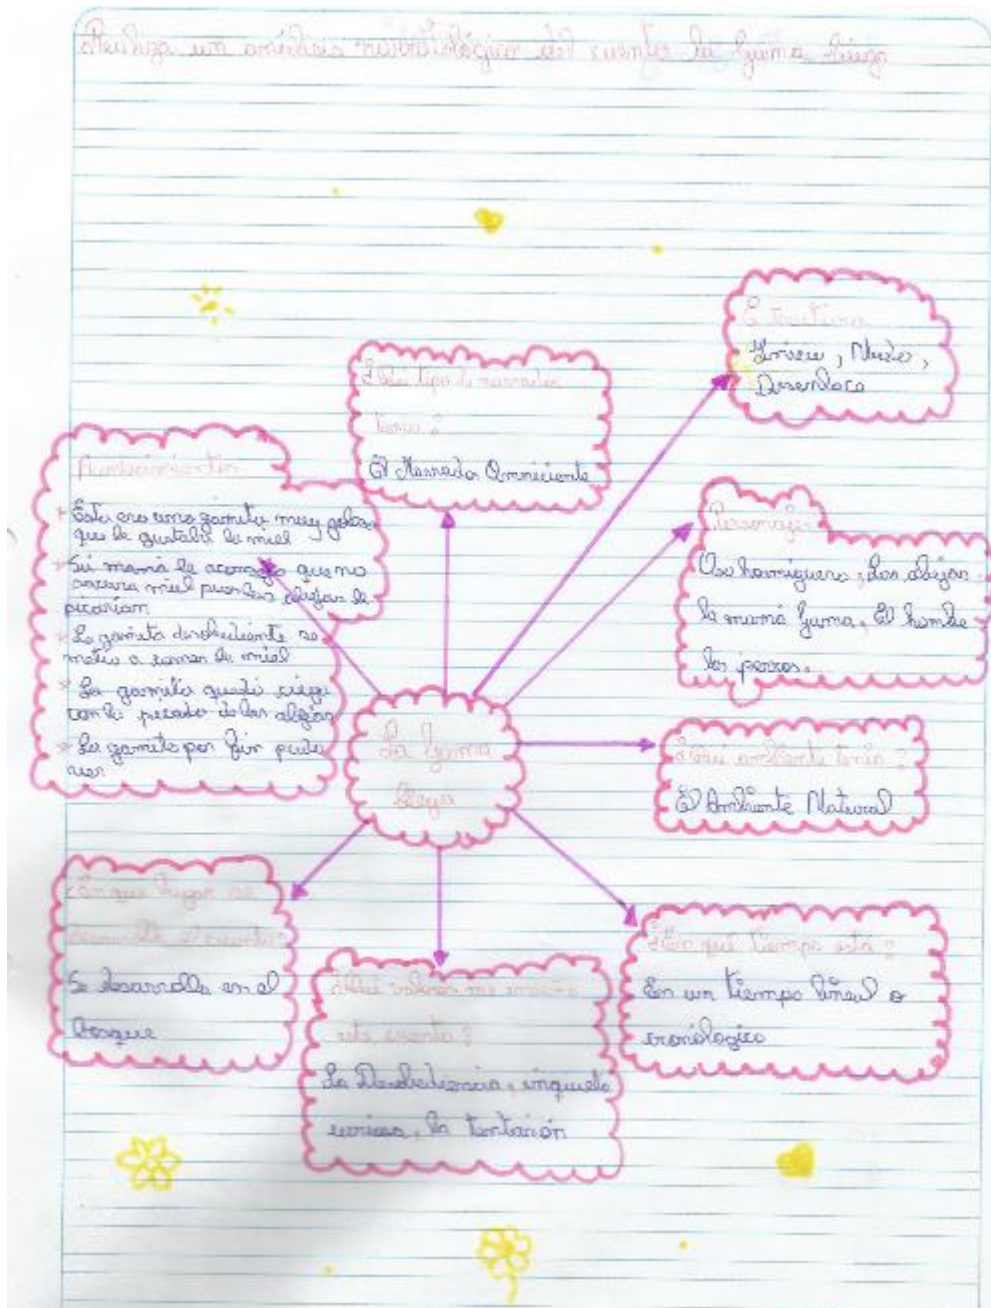 Realiza un análisis narratológico del cuento la Gama ciega
Estructura
Inicio, Nudo,
Desenlace
¿Qué tipo de narrador
tenia?
El Narrador Omniciente
Acontecimientos
* Esta era una gamita muy golosa
que le gustaba la miel
* Su mamá le aconsejo que no
miel pues las abejas le
picarían
* La gamita desobediente se
metio a comer la miel
* La gamita quedó ciega
con la picada de las abejas
* La gamita por fin pudo
ver
Personajes
Oso hormiguero, Las abejas
la mamá Gama, El hombre
los perros.
La Gama
Ciega
¿Qué ambiente tenia?
El Ambiente Natural
¿En que lugar se
desarrolla el cuento?
Se desarrolla en el
Bosque
¿Qué valores me enseña
este cuento?
La Desobediencia, inquieta
la tentación
¿En qué tiempo está?
En un tiempo lineal o
cronólogico